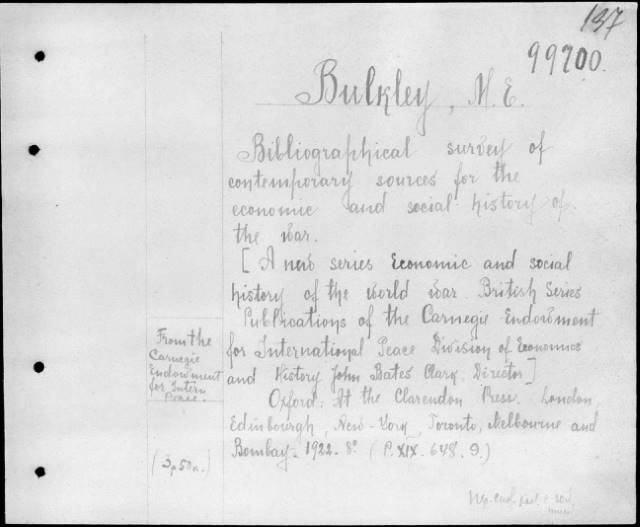 137
99200.
Bulkley, M. E.
Bibliographical survey of
contemporary sources for the
economic and social history of
the war.
[ A new series Economic and social
history of the world war British Series
Publications of the Carnegie Endowment
for International Peace Division of Economics
and History John Bates Clark, Director]
Oxford: At the Clarendon Press. London,
Edinbourgh, New-York, Toronto, Melbourne and
Bombay. 1922. 8° (P. XIX. 648. 9.)
From the
Carnegie
Endowment
for Intern
Peace.